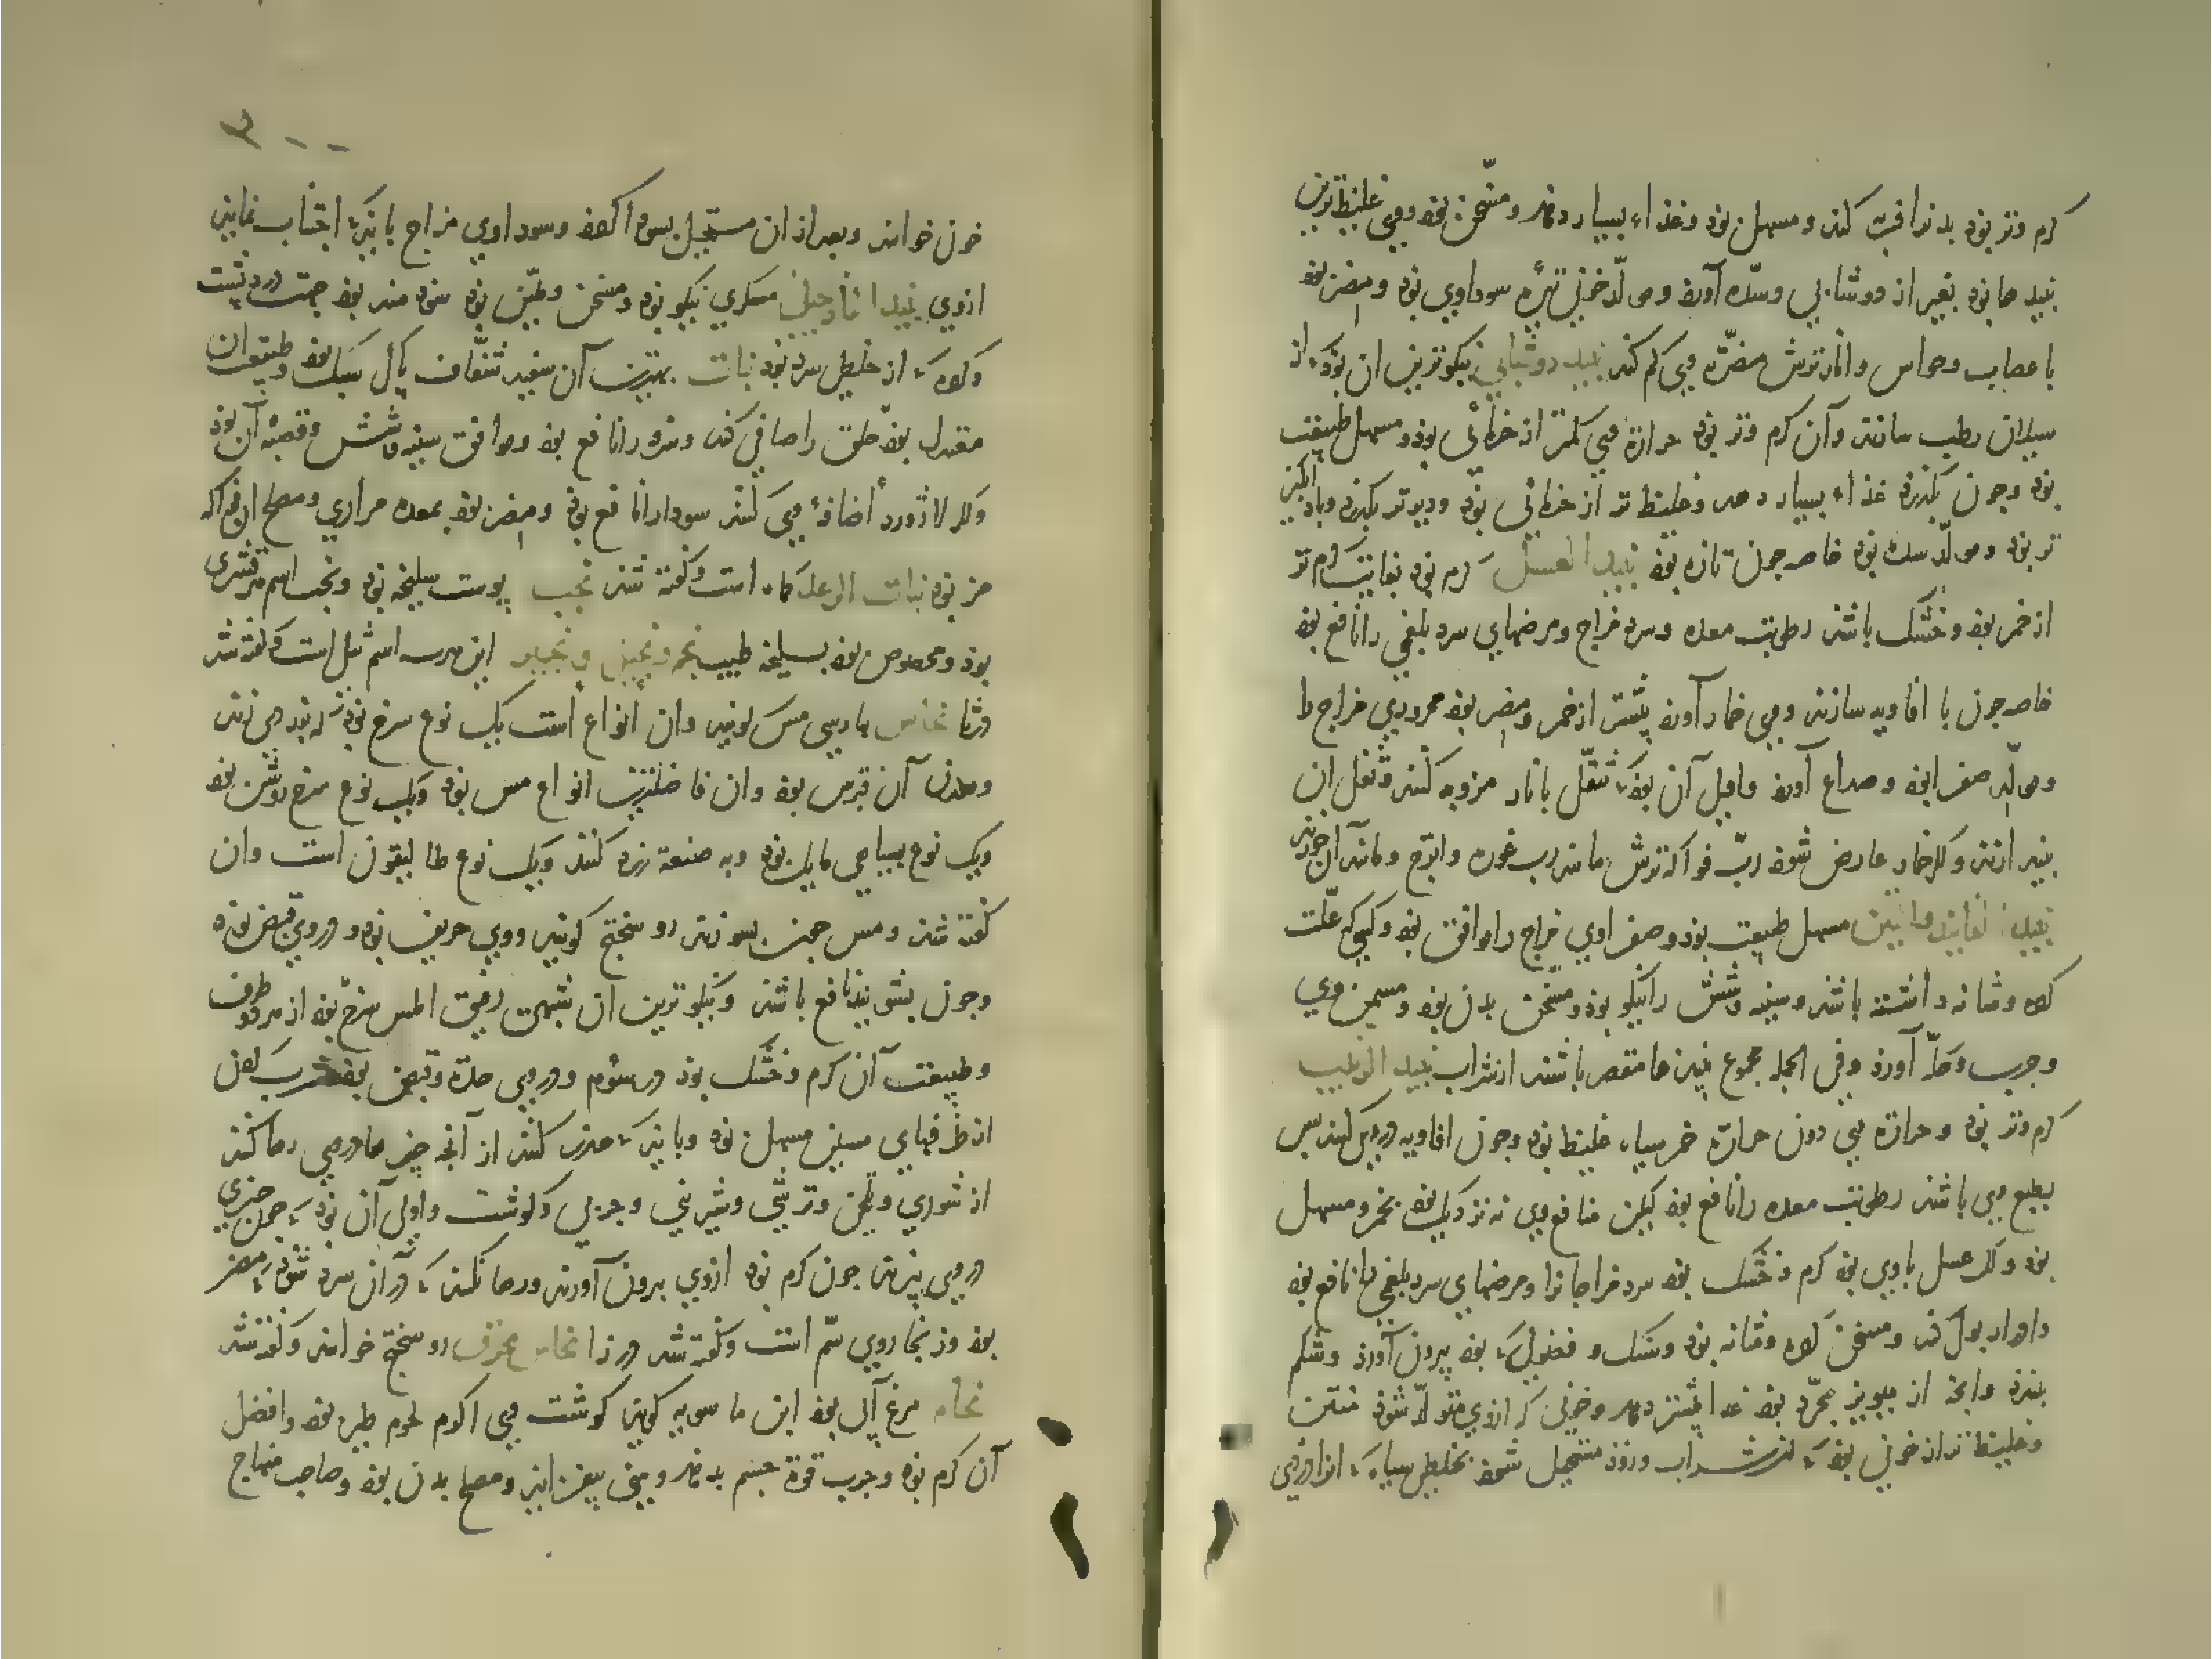 کرم وتر بود بدنرا فربه کند ومسهل بود وغذاء بسیار دهد ومسخن بود ووی غلیظ‌ترین
نبیدها بود بغیر از دوشابی وسده آورد ومولد خونی تیره سوداوی بود ومضر بود
باعصاب وحواس وانار ترش مضرة وی کم کند نبید دوشابی نیکوترین ان بود که از
سیلان رطب سازند وآن کرم وتر بود حرارة وی کمتر از خرمائی بود ومسهل طبیعت
بود وجون بکذرد غذاء بسیار دهد وغلیظ تر از خرمائی بود ودیرتر بکذرد وباد انکیز
تر بود ومولد سده بود خاصه جون تازه بود نبید العسل کرم بود بغایت کرم تر
از خمر بود وخشک باشد رطوبت معده وسرد مزاج ومرضهای سرد بلغمی را نافع بود
خاصه جون با افاویه سازند ووی خمار آورد بیشتر از خمر ومضر بود محروری مزاج را
ومولد صفرا بود وصداع آورد واولی آن بود که تنقل بانار مزوبه کنند وثفل ان
بیندازند وکر خمار عارض شود رب فواکه ترش مانند رب غوره واترج ومانند آن خورند
نبید الفانید والتین مسهل طبیعت بود وصفراوی مزاج را موافق بود وکسی که علت
کرده ومثانه داشته باشد وسینه وشش را نیکو بود ومسخن بدن بود ومسمن وی
وجرب وحکه آورد وفی الجمله مجموع نبیدها مقصر باشند از شراب نبید الزبیب
کرم وتر بود وحرارة وی دون حرارة خمر سیاه غلیظ بود وجون افاویه در وی کنند بس
بطبع وی باشد رطوبت معده را نافع بود لیکن منافع وی نه نزدیک بود بخمر ومسهل
بود وکر عسل باوی بود کرم وخشک بود سرد مزاجانرا ومرضهای سرد بلغمی را نافع بود
وادرار بول کند ومسخن کرده ومثانه بود وسنک وفضولی که بود بیرون آورد وشکم
ببندد وانچه از مویز مجرد بود غذا بیشتر دهد وخونی که ازوی متولد شود متین
وغلیظ تر از خونی بود که از شراب وزود مستحیل شود بخلطی سیاه که انرا دردی
۳۰۰
خون خوانند وبعد از ان مستحیل بسودا کردد وسوداوی مزاج باید که اجتناب نمایند
ازوی نبید النارجیل مسکری نیکو بود ومسخن وملین بود سودمند بود جهت درد پشت
وکرده که از خلطی سرد بود نبات بهترین آن سفید شفاف پاک سبک بود وطبیعت ان
معتدل بود حلق را صافی کند وسرفه را نافع بود وموافق سینه وشش وقصبه آن بود
وکر لاژورد اضافه وی کنند سودا را نافع بود ومضر بود بمعده مراری ومصلح ان فواکه
مز بود نبات الرعد کماه است وکفته شد نجب پوست سلیخه بود ونجب اسم هر قشری
بود ومخصوص بود بسلیخه طیب نجم ونجیل ونجیر این هر سه اسم ثیل است وکفته شد
در ثا نحاس بپارسی مس کویند وان انواع است یک نوع سرخ بود که بزردی زند
ومعدن آن قبرس بود وان فاضلترین انواع مس بود ویک نوع سرخ روشن بود
ویک نوع بسیاهی مایل بود وبه صنعة زرد کنند ویک نوع طالیقون است وان
کفته شد ومس جون بسوزند روسختج کویند ووی حریف بود ودر وی قبض بود
وجون بشویند نافع باشد ونیکوترین آن شبیهی رقیق املس سرخ بود از هر دو طرف
وطبیعت آن کرم وخشک بود در سئوم ودر وی حدة وقبض بود شرب کردن
از ظرفهای مسین مسهل بود وباید که حذر کنند از آنچه چیزها در وی رها کنند
از شوری وتلخی وترشی وشیرینی وجربی وکوشت واولی آن بود که جون چیزی
در وی پزند جون کرم بود ازوی بیرون آورند ورها نکنند که در آن سرد شود که مضر
بود وزنجار وی سم است وکفته شد در زا نحاس محرق روسختج خوانند وکفته شد
نحام مرغ آبی بود ابن ماسویه کوید کوشت وی اکرم لحوم طیر بود وافضل
آن کرم بود وجرب قوة جسم بدهد ومنی بیفزاید ومصلح بدن بود وصاحب منهاج